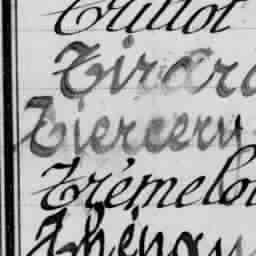 Trillot
Tirard
Tiercerv
Trémelo
Thénau